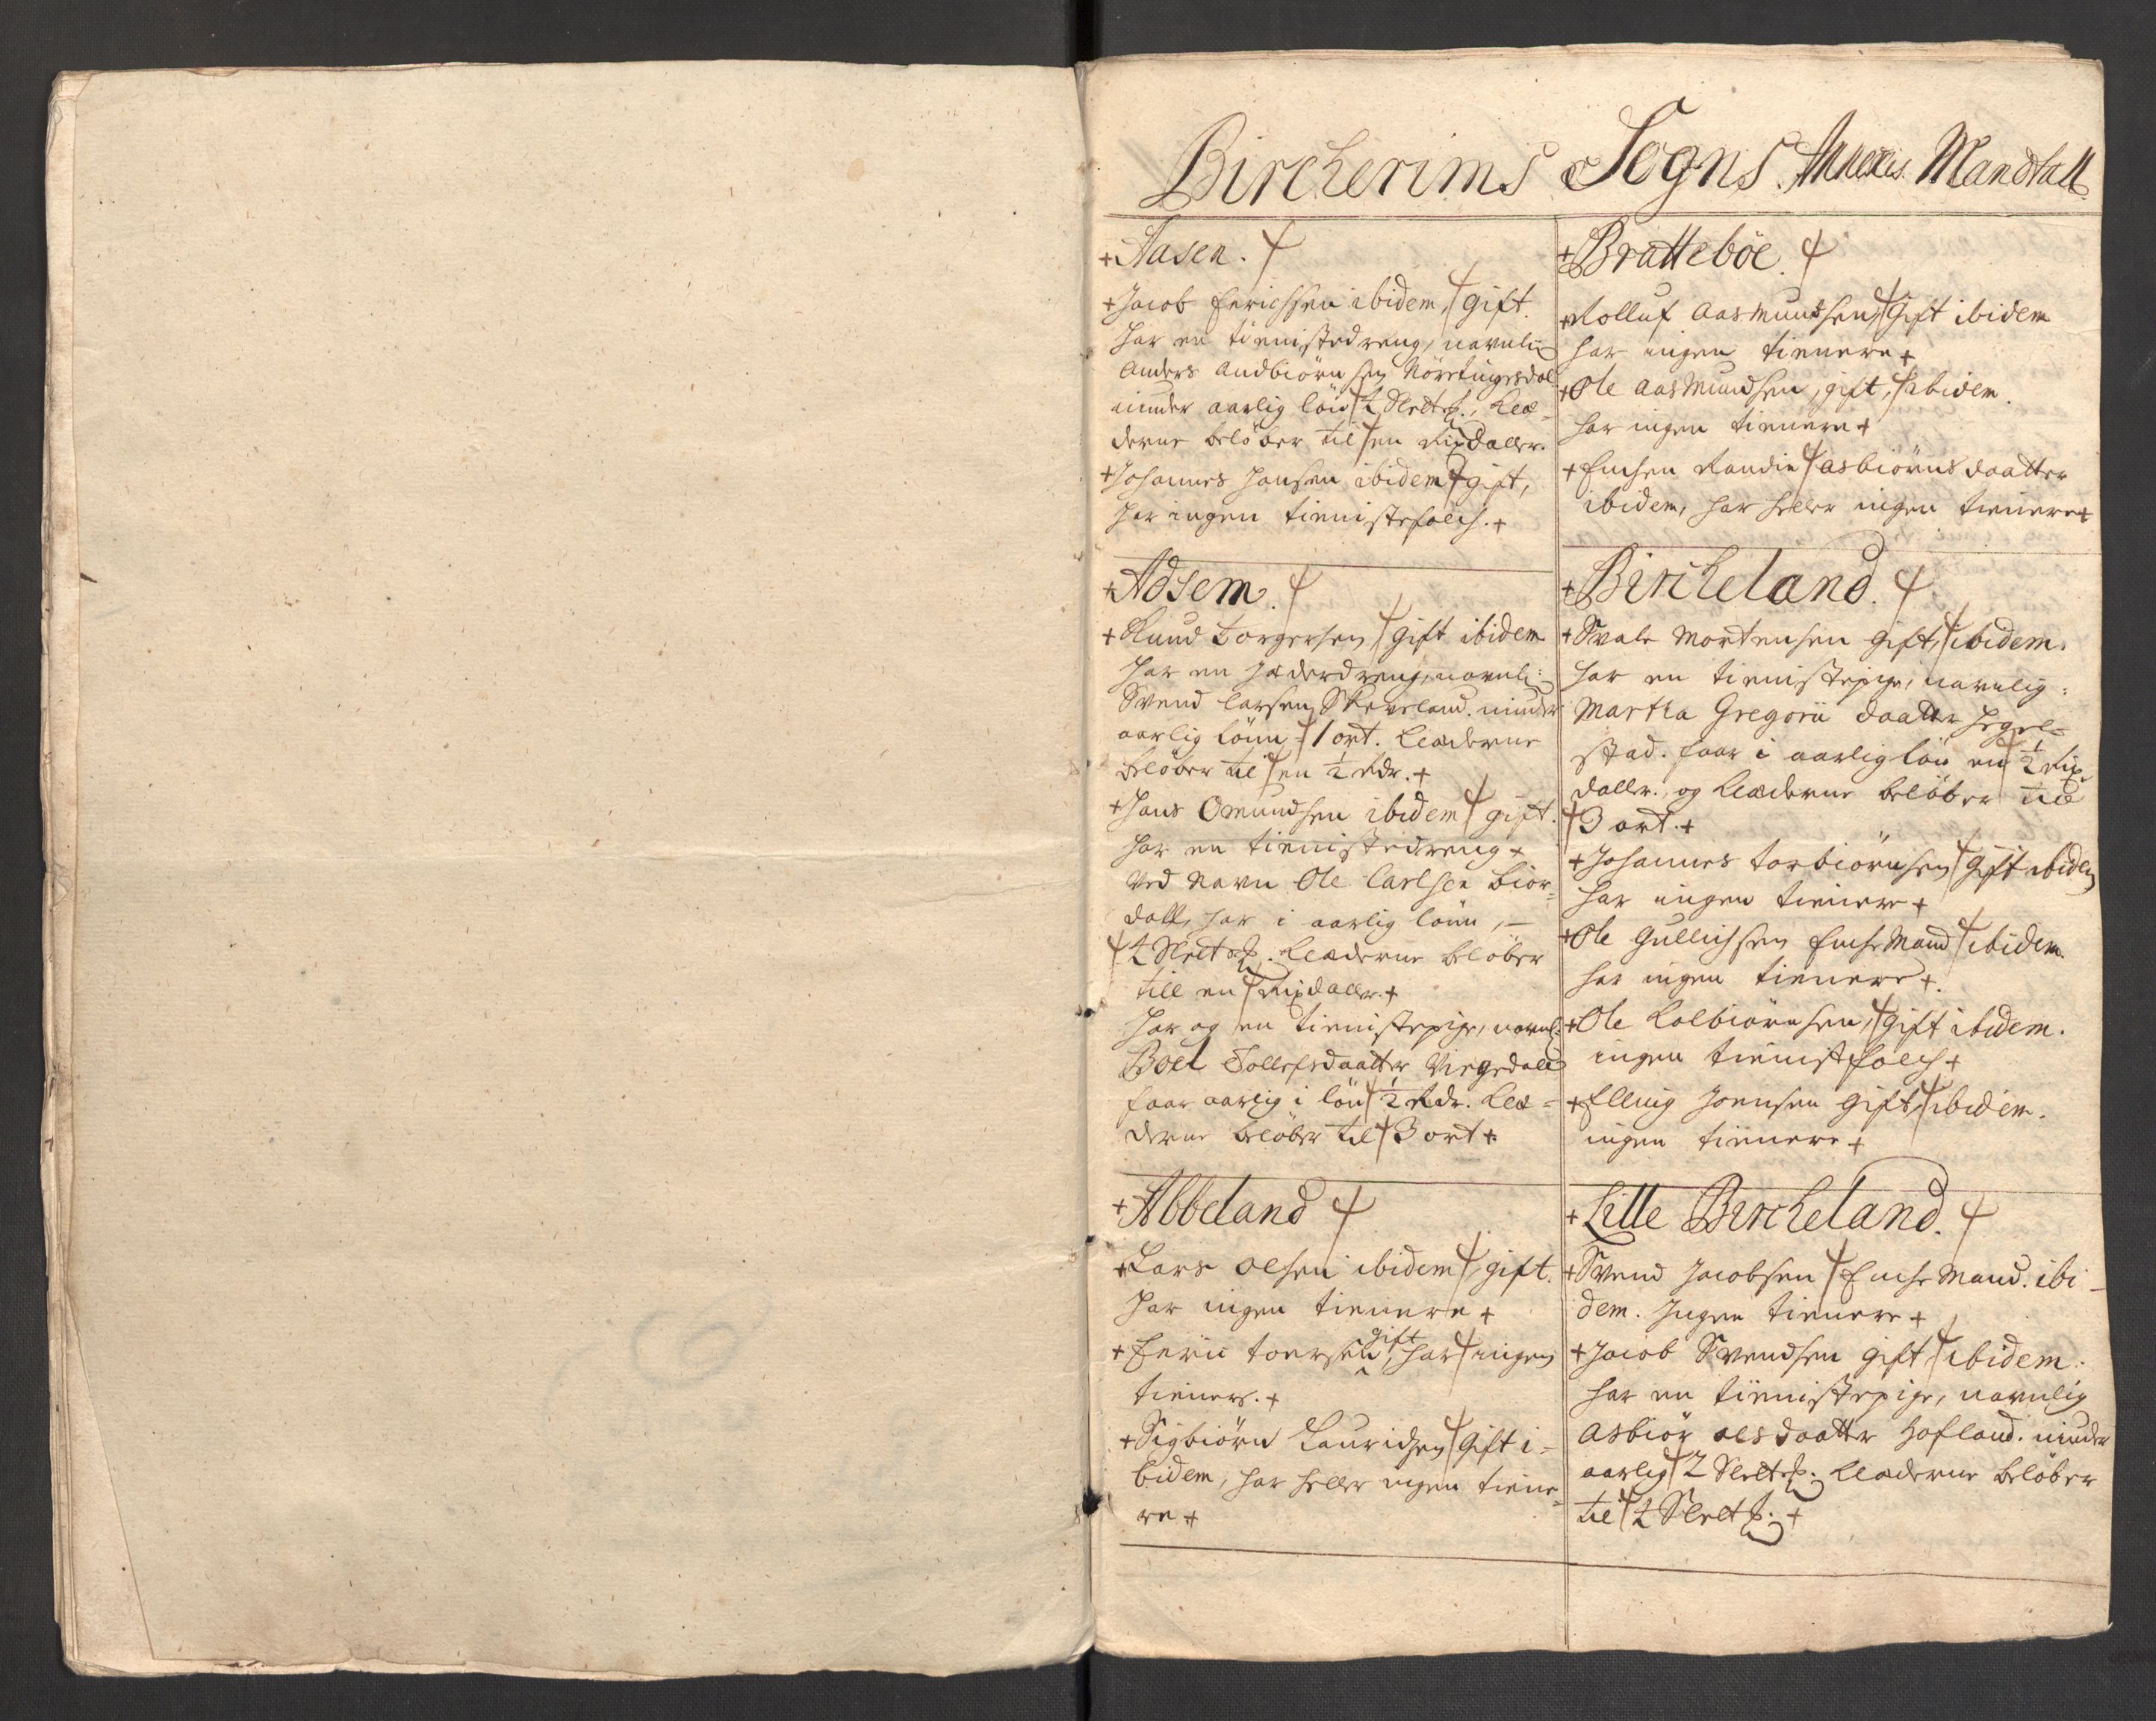 Bircherims Sogns Annexis Mandtall
+Aasen.
+Jacob Erichssen ibidem, gift.
har en tienistedreng, navnlig
Anders Andbiörnsen
under aarlig lön 2 Slet d., Klæ-
derne belöber til en Rixdaller.
+Johannes Hansen ibidem gift,
har ingen tienistefolch. +
+Adsem.
+Knud Torgersen gift ibidem
har en
Svend Larsen Skeveland. nyder
aarlig Lönn - 1 ort. Klæderne
belöber til en ½ Rdr. +
+Hans Omundsen ibidem gift.
har en tienistedreng +
ved Navn Ole Carlsen Bior-
dall, har i aarlig lönn, -
2 Slet d. Klæderne belöber
till en Rixdaller. +
Har og en tienistepige, navnl:
Boel Tollefsdaatter Virgedall
faar aarlig i lön ½ Rdr. Klæ-
derne belöber til 3 ort +
+Abbeland
+Lars Olsen ibidem, gift.
har ingen tienere +
+Eeric Toersen, gift, har ingen
tienere. +
+Sigbiörn Lauridsen gift i-
bidem, har heller ingen tiene-
re +
+Bratteböe.
+Rolluf Aasmundsen, gift ibidem
har ingen tienere +
+Ole Aasmundsen, gift, ibidem.
har ingen tienere +
+Enchen Randie Asbiörnsdaatter
ibidem, har heller ingen tienere +
+Bircheland.
+Svale Mortensen gift, ibidem.
har en tienistepige, navnlig:
Martha Gregorii daatter Hegel-
stad. faar i aarlig lön en ½ Rix-
daller., og Klæderne belöber til
3 ort. +
+Johannes Torbiörnsen gift ibidem
har ingen tienere +
+Ole Gullichsen Enchemand ibidem.
har ingen tienere +
+Ole Kolbiörnsen, gift ibidem.
ingen tienistfolch +
+Elling Joensen gift, ibidem.
ingen tienere +
+Lille Bircheland.
+Svend Jacobsen Enchemand. ibi-
dem. Ingen tienere +
+Jacob Svendsen gift, ibidem.
har en tienistepige, navnlig
Asbiör Olsdaatter Hofland. nyder
aarlig 2 Slet d. Klæderne belöber
til 2 Slet d. +